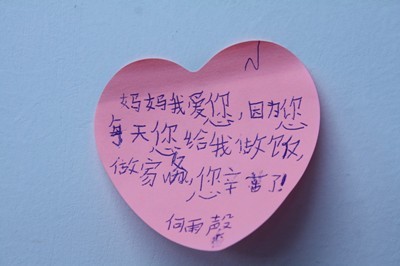 妈妈我爱您,因为您
每天您给我做饭,
做家务,您辛苦了!
何雨